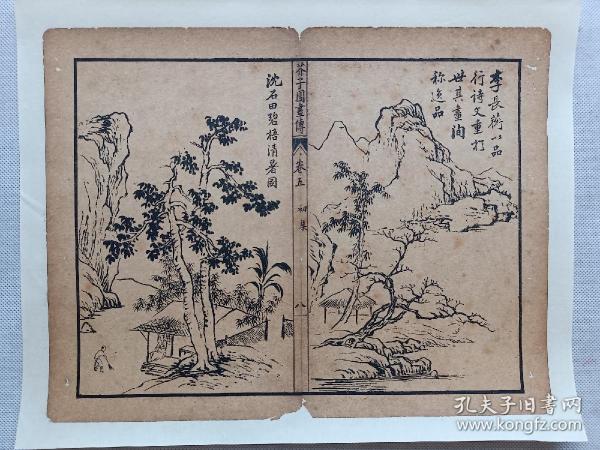 李長蘅以品
行詩文重於
世其畫洵
称逸品
芥子園畫傳
卷五
初集
八
沈石田碧梧清暑圖
孔夫子旧书网
www.kongfz.com